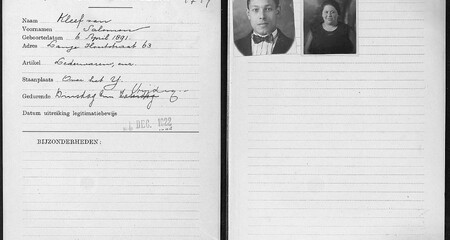 Naam Kleef van
Voornamen Salomon
Geboortedatum 6 April 1891.
Adres Lange Houtstraat 63
Artikel Lederwaren, enz.
Staanplaats Over het Y.
Vrijdag
Gedurende Dinsdag t/m Zaterdag
Datum uitreiking legitimatiebewijs
DEC. 1922
BIJZONDERHEDEN: